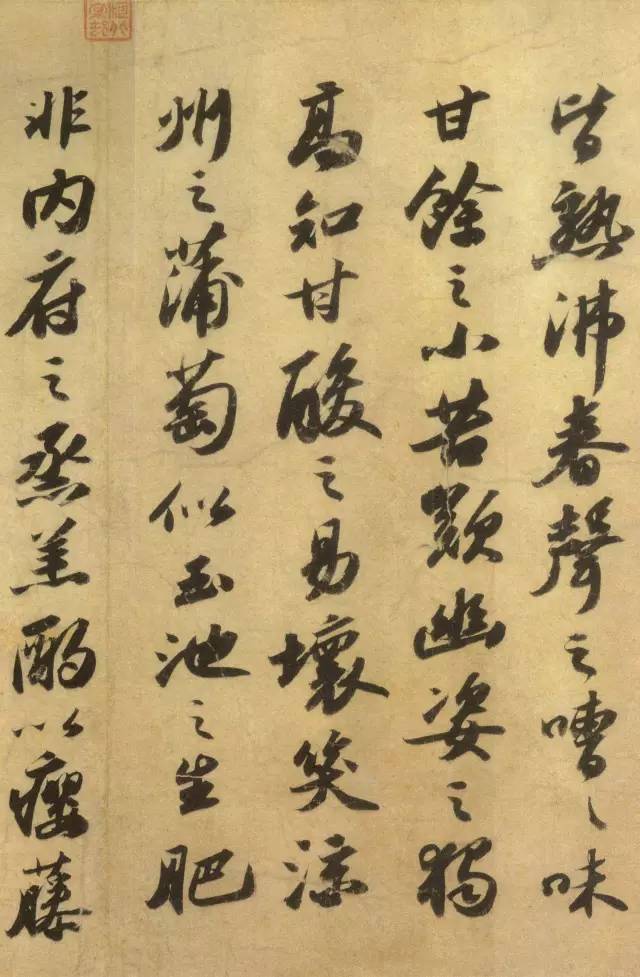 皆熟沸舂聲之嘈〻味
甘餘之小苦歎幽姿之獨
高知甘酸之易壞笑涼
州之蒲萄似玉池之生肥
非內府之烝羔酌以癭藤